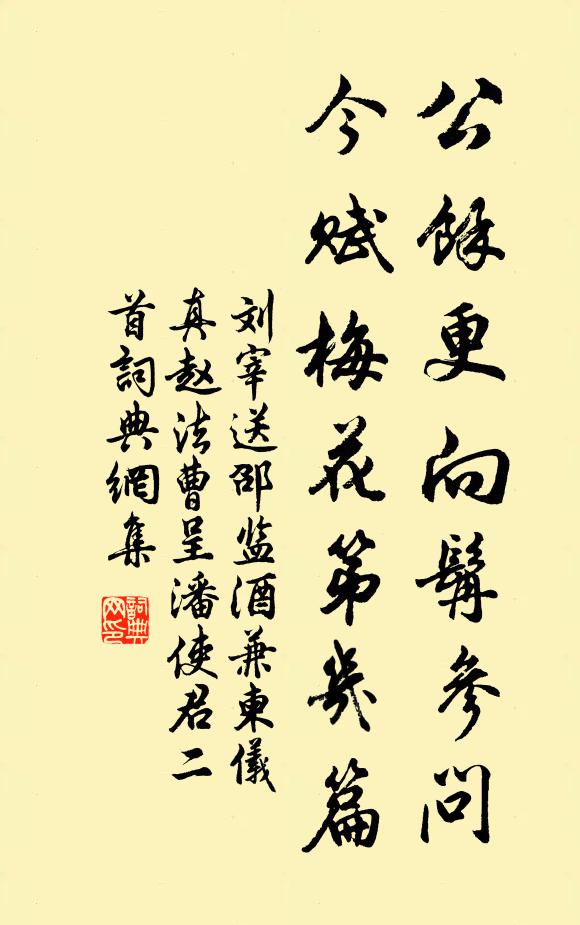 公餘更向髯參問
今赋梅花第幾篇
刘宰送邵监酒兼東儀
真赵法曹呈潘使君二
首詞典網集
詞典网印